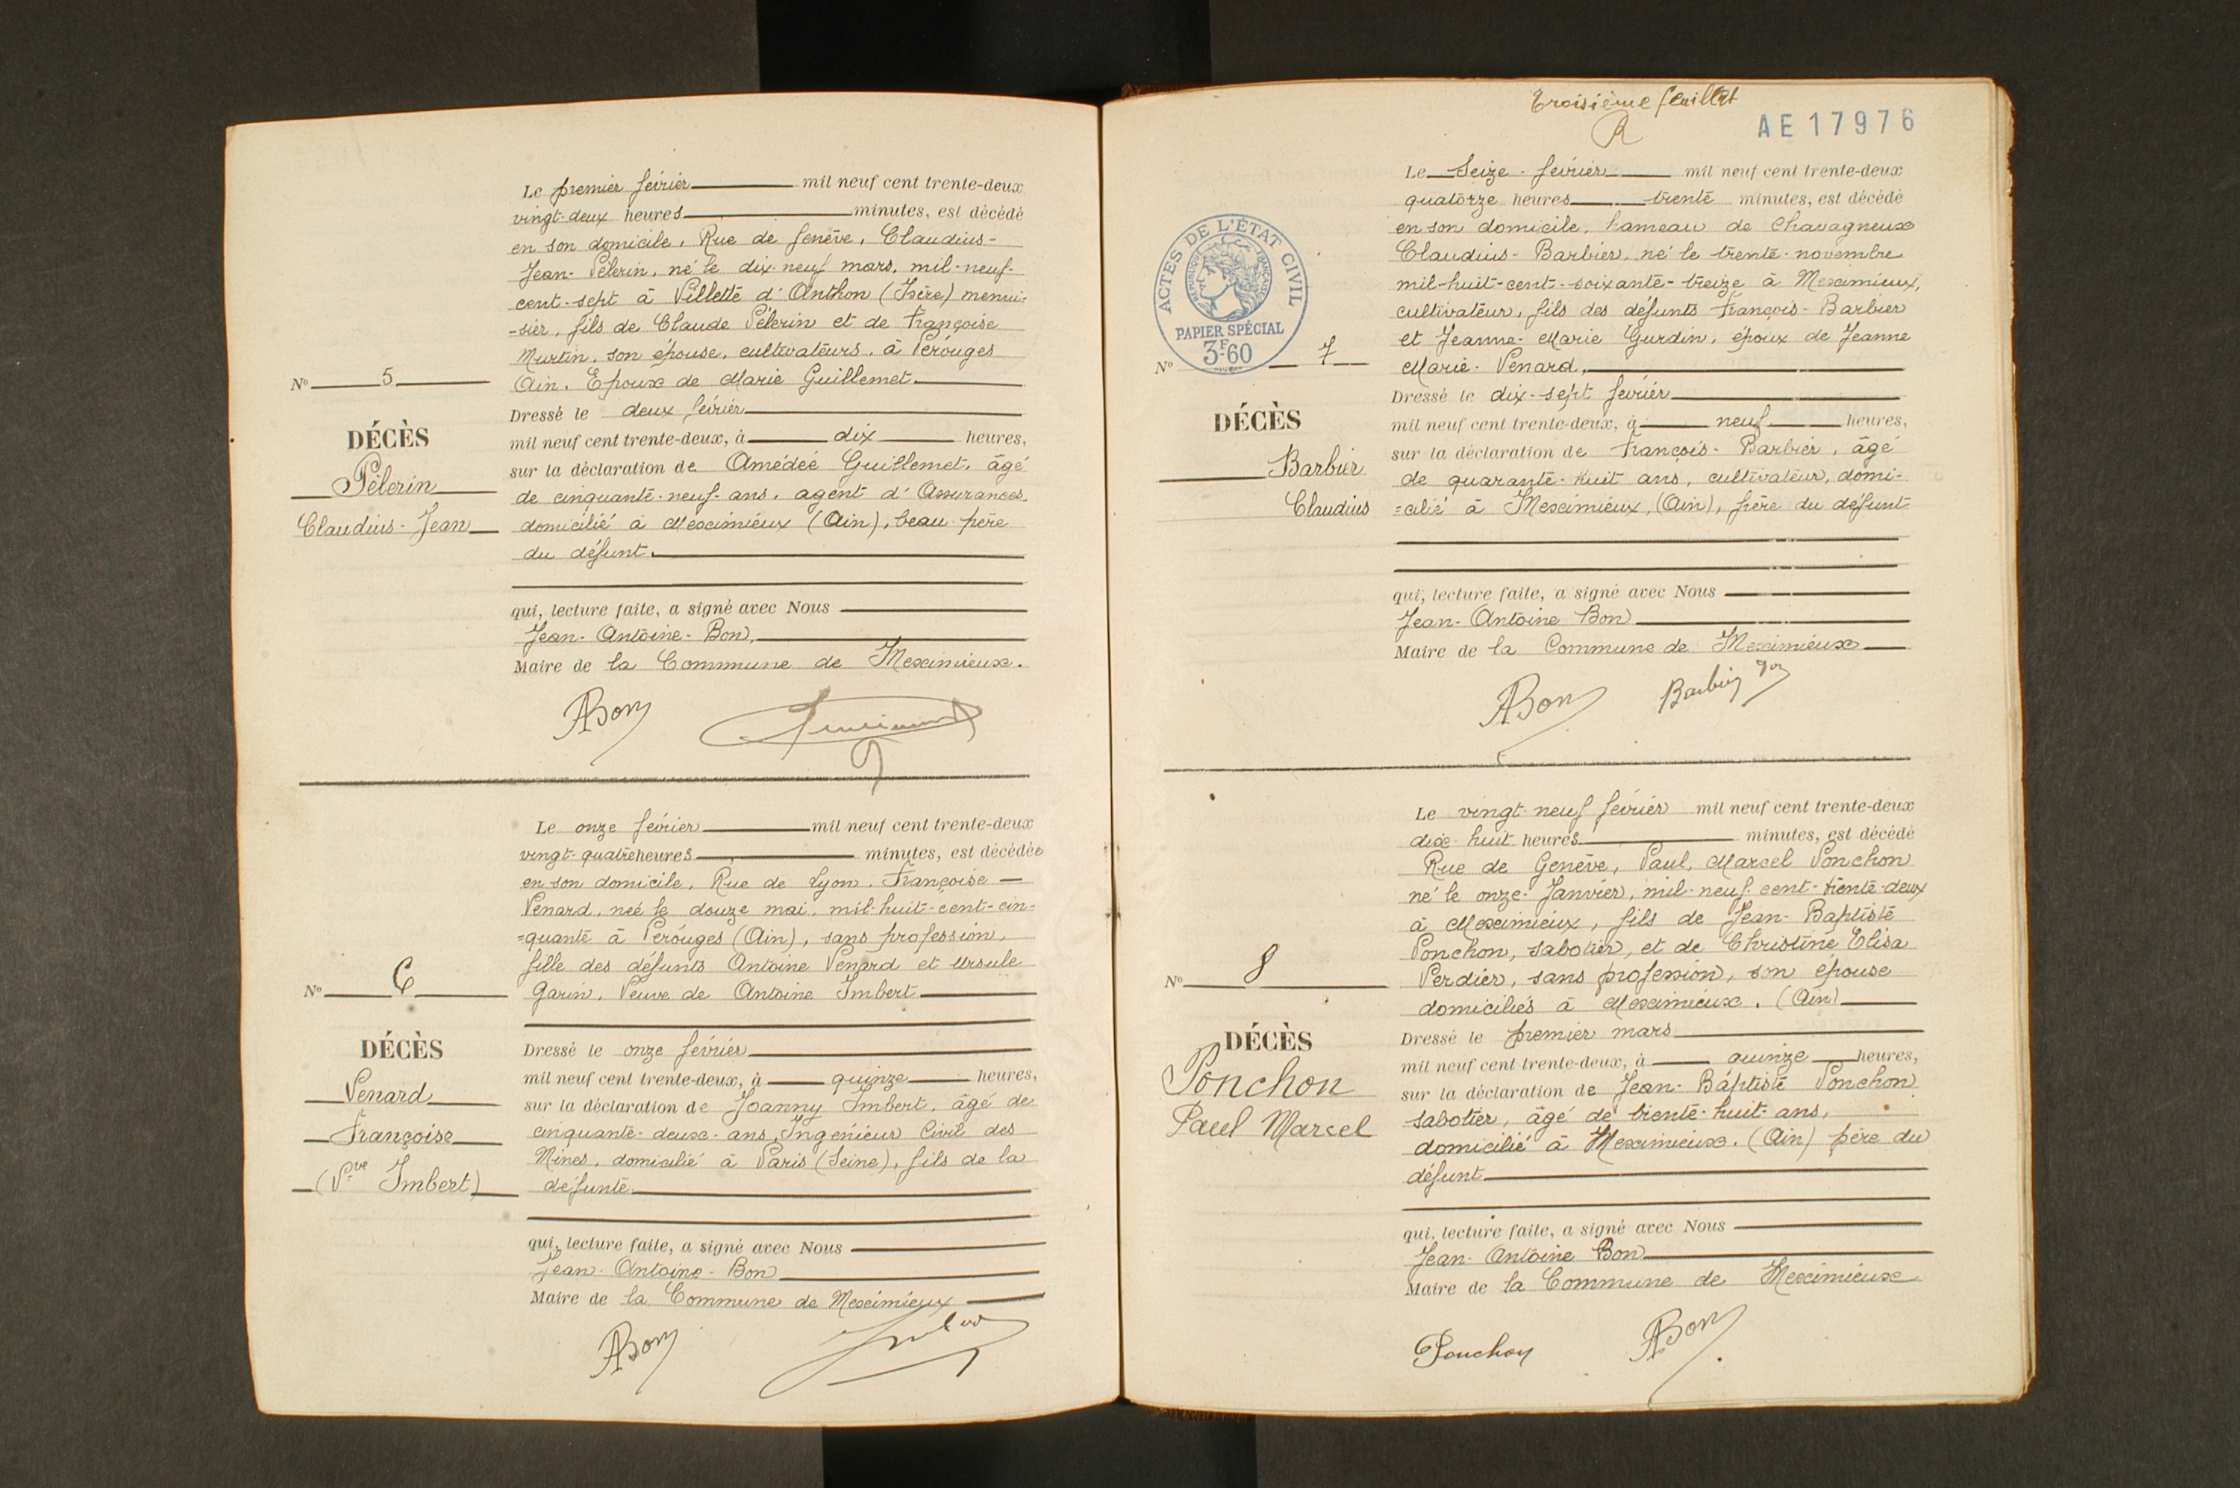 Le premier février mil neuf cent trente-deux
vingt-deux heures minutes, est décédé
en son domicile, Rue de Genève, Claudius-
Jean- Pélerin, né le dix-neuf mars, mil-neuf-
cent-sept à Villette d'Anthon (Isère) menui-
-sier, fils de Claude Pélerin et de Françoise
Murtin, son épouse, cultivateurs, à Pérouges
Ain. Epoux de Marie Guillemet
Nº 5
DÉCÈS
Pélerin
Claudius-Jean
Dressé le deux février
mil neuf cent trente-deux, à dix heures,
sur la déclaration de Amédée Guillemet, âgé
de cinquante-neuf-ans, agent d'Assurances,
domicilié à Meximieux (Ain), beau-père
du défunt.
qui, lecture faite, a signé avec Nous
Jean-Antoine-Bon,
Maire de la Commune de Meximieux.
ABon
Le onze février mil neuf cent trente-deux
vingt-quatre heures minutes, est décédée
en son domicile, Rue de Lyon, Françoise
Venard, née le douze mai, mil-huit-cent-cin=
=quante à Pérouges (Ain), sans profession,
fille des défunts Antoine Venard et Ursule
Garin, Veuve de Antoine Imbert
Nº 6
DÉCÈS
Venard
Françoise
(Vve Imbert)
Dressé le onze février
mil neuf cent trente-deux, à quinze heures,
sur la déclaration de Joanny Imbert, âgé de
cinquante-deux-ans, Ingénieur Civil des
Mines, domicilié à Paris (Seine), fils de la
défunte
qui, lecture faite, a signé avec Nous
Jean-Antoine-Bon
Maire de la Commune de Meximieux
ABon
Troisième feuillet
AE17976
Le Seize-février mil neuf cent trente-deux
quatorze heures trente minutes, est décédé
en son domicile, hameau de Chavagneux
Claudius-Barbier, né le trente-novembre
mil-huit-cent-soixante-treize à Meximieux,
cultivateur, fils des défunts François-Barbier
et Jeanne-Marie Gurdin, époux de Jeanne
Marie-Venard,
ACTES DE L'ÉTAT CIVIL
RÉPUBLIQUE FRANÇAISE
PAPIER SPÉCIAL
3F60
Nº 7
DÉCÈS
Barbier
Claudius
Dressé le dix-sept février
mil neuf cent trente-deux, à neuf heures,
sur la déclaration de François-Barbier, âgé
de quarante-huit ans, cultivateur, domi-
=cilié à Meximieux, (Ain), frère du défunt
qui, lecture faite, a signé avec Nous
Jean-Antoine Bon
Maire de la Commune de Meximieux
ABon
Barbier
Le vingt-neuf février mil neuf cent trente-deux
dix-huit heures minutes, est décédé
Rue de Genève, Paul, Marcel Ponchon
né le onze-Janvier, mil-neuf-cent-trente-deux
à Meximieux, fils de Jean-Baptiste
Ponchon, sabotier, et de Christine Elisa
Verdier, sans profession, son épouse
domiciliés à Meximieux. (Ain)
Nº 8
DÉCÈS
Ponchon
Paul Marcel
Dressé le premier mars
mil neuf cent trente-deux, à quinze heures,
sur la déclaration de Jean-Baptiste Ponchon
sabotier, âgé de trente-huit-ans,
domicilié à Meximieux. (Ain) père du
défunt
qui, lecture faite, a signé avec Nous
Jean-Antoine Bon
Maire de la Commune de Meximieux
Ponchon
ABon